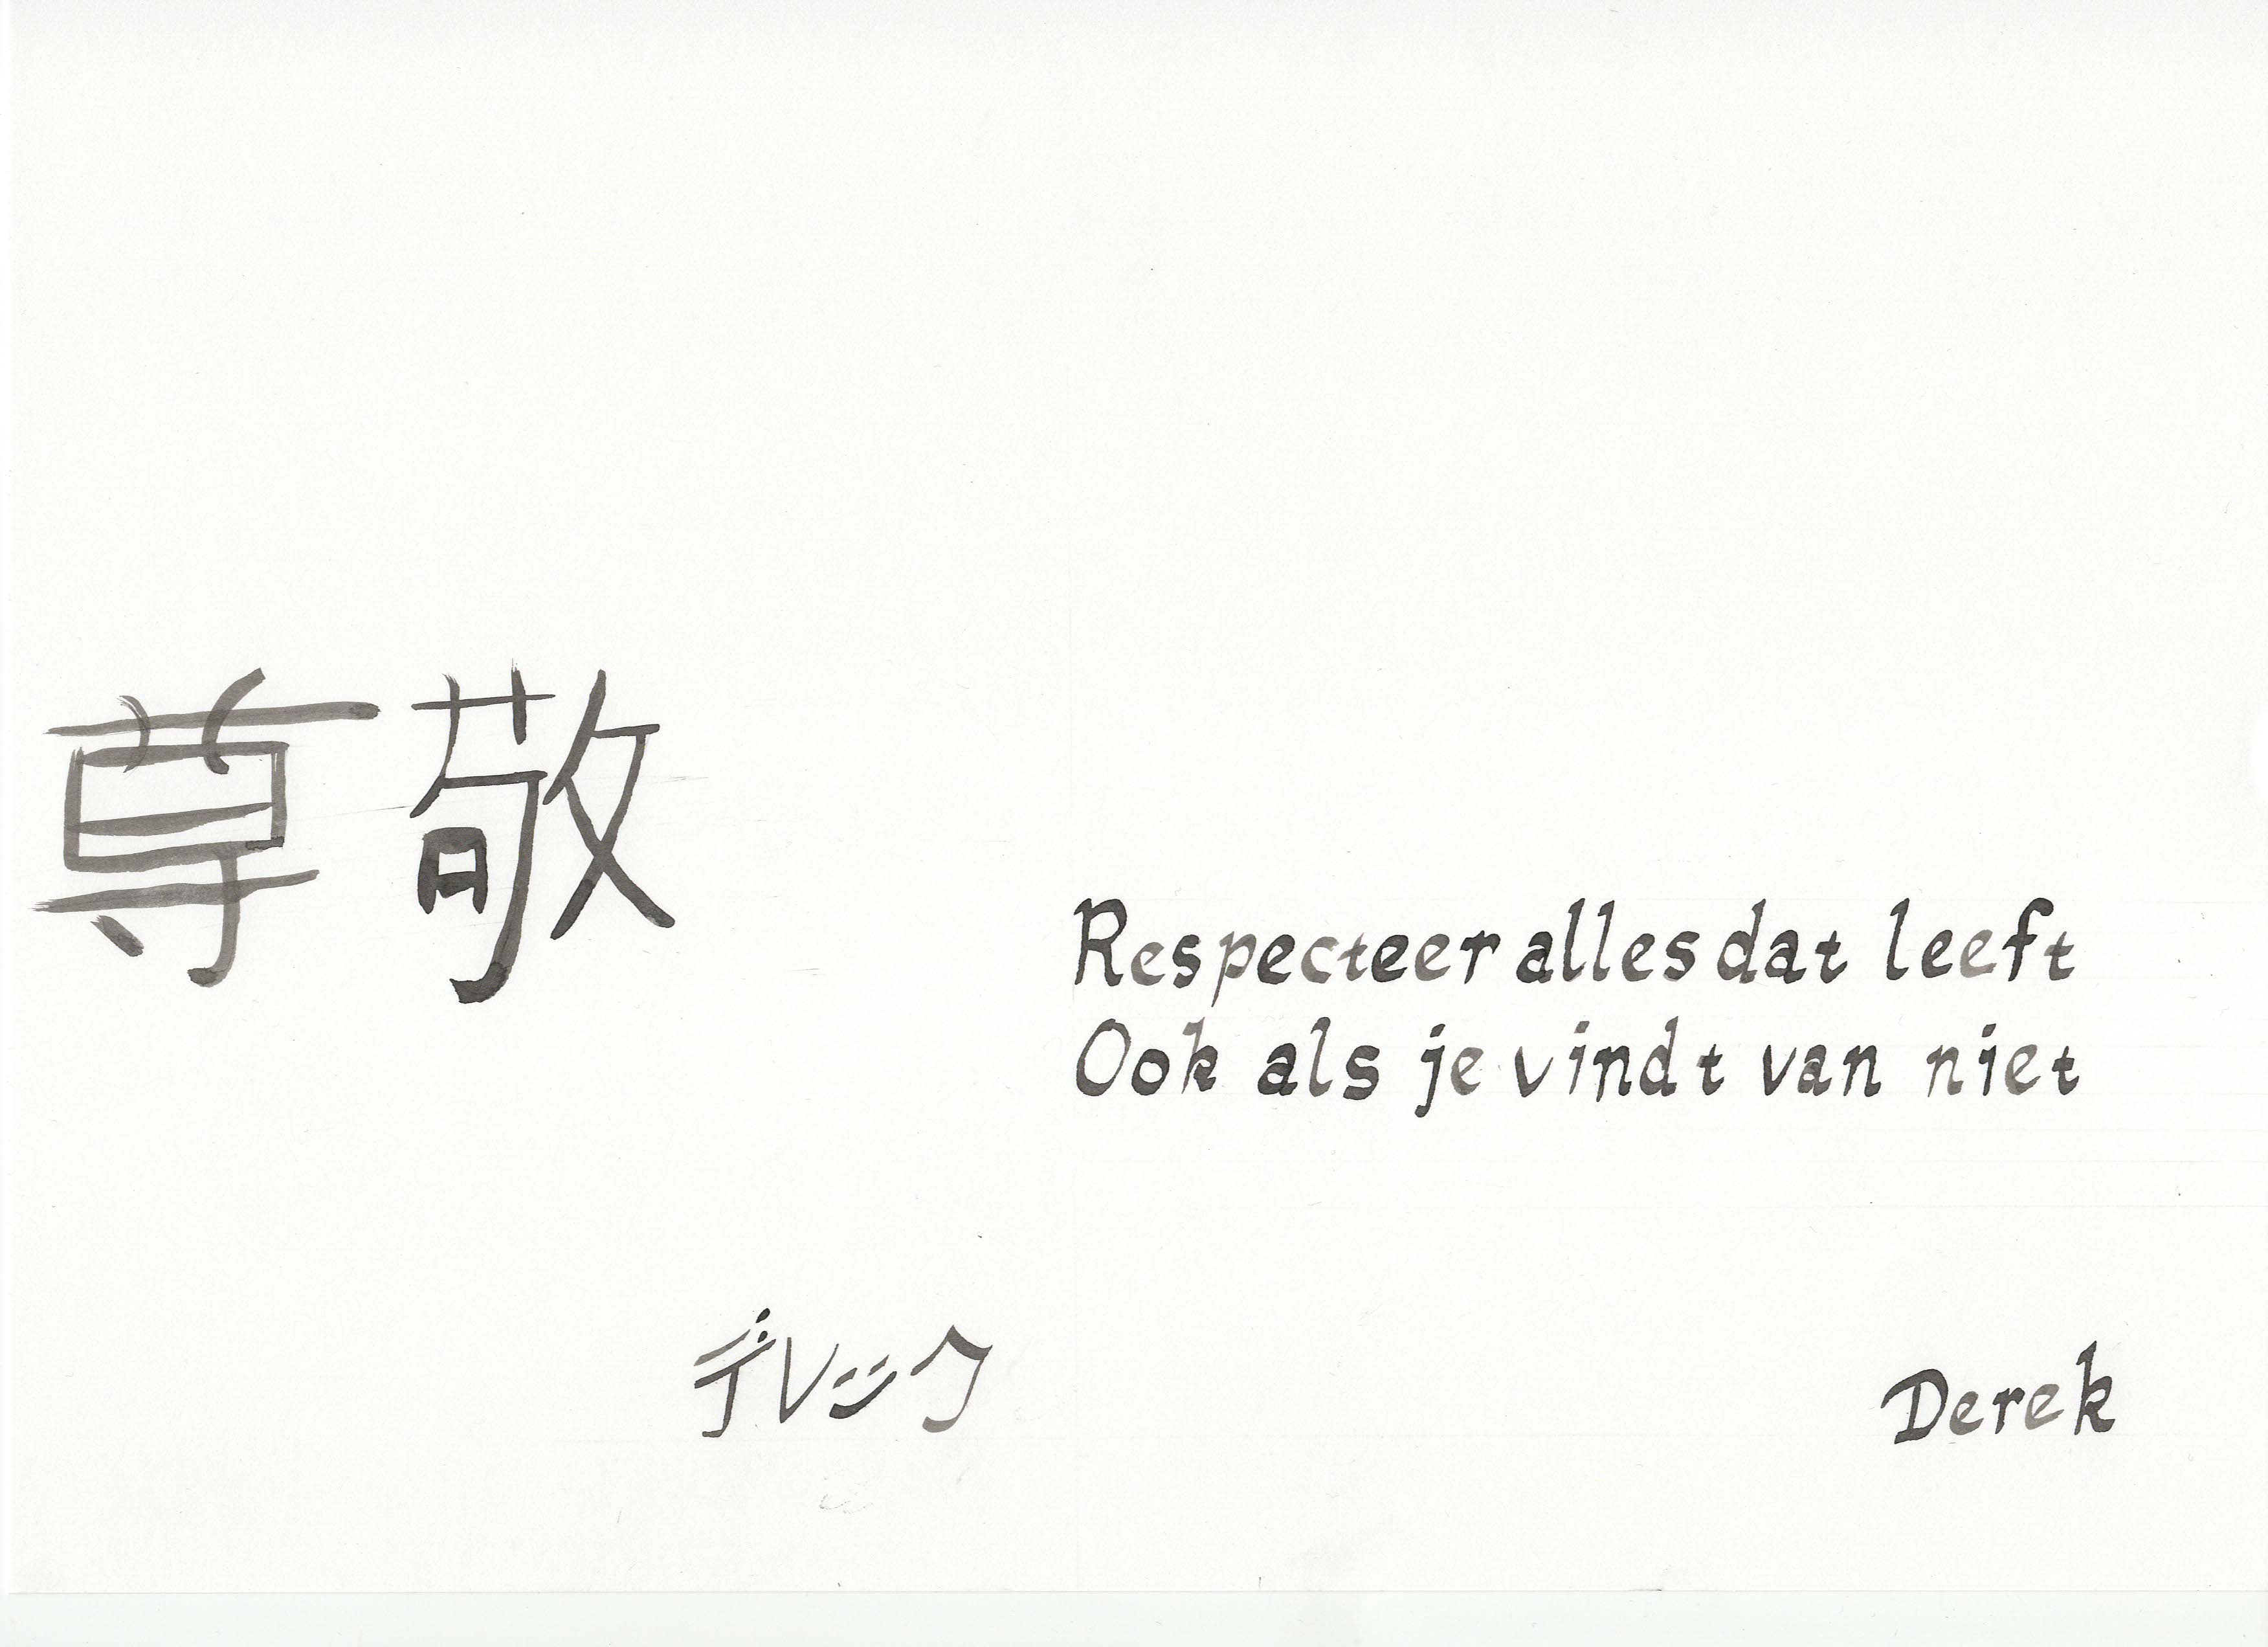 尊敬
Respecteer alles dat leeft
Ook als je vindt van niet
デレック
Derek